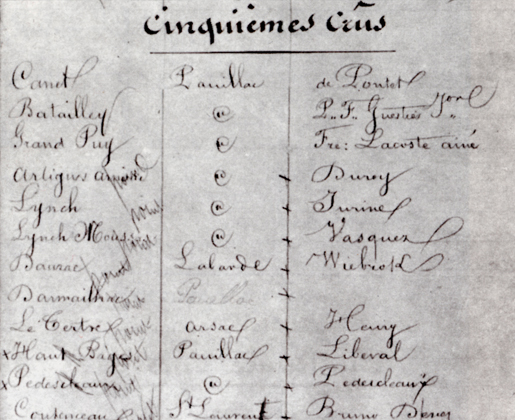 Cinquièmes Crûs
Canet Pauillac de Pontet
Batailley @ P. F. Guestier
Grand Puy @ Fre: Lacoste ainé
Artigues Arnaud @ Duroy
Lynch @ Jurine
Lynch Moussas @ Vasquez
Bauzac Labarde Wiebrok
Darmailhac Pauillac
Le Tertre arsac Henry
x Haut Bages Pauillac Liberal
x Pedesclaux @ Pedesclaux
Coutenceau St Laurent Bruno Devez